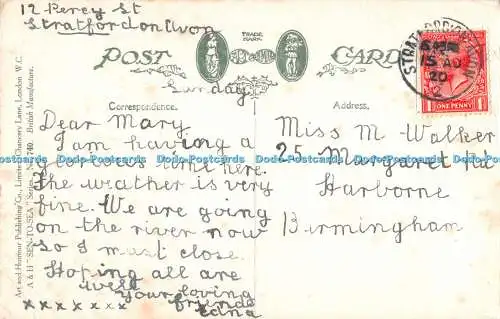 12 Percy St
Stratford on Avon
TRADE
MARK
POST CARD
Sunday
STRATFORD-ON-AVON
15 AU
20
ONE PENNY
Correspondence.
Address.
Dear Mary.
I am having a
time here.
the weather is very
fine. We are going
on the river now
so I must close.
Hoping all are
well
your loving
friend
Edna
x x x x x x x
Miss M Walker
25 Margaret Rd
Harborne
Birmingham
Art and Humour Publishing Co., Limited, Chancery Lane, London W.C.
A & H "SEN-TO-SEA" Series No. British Manufacture.
Dodo-Postcards Dodo-Postcards Dodo-Postcards Dodo-Postcards Dodo-Postcards